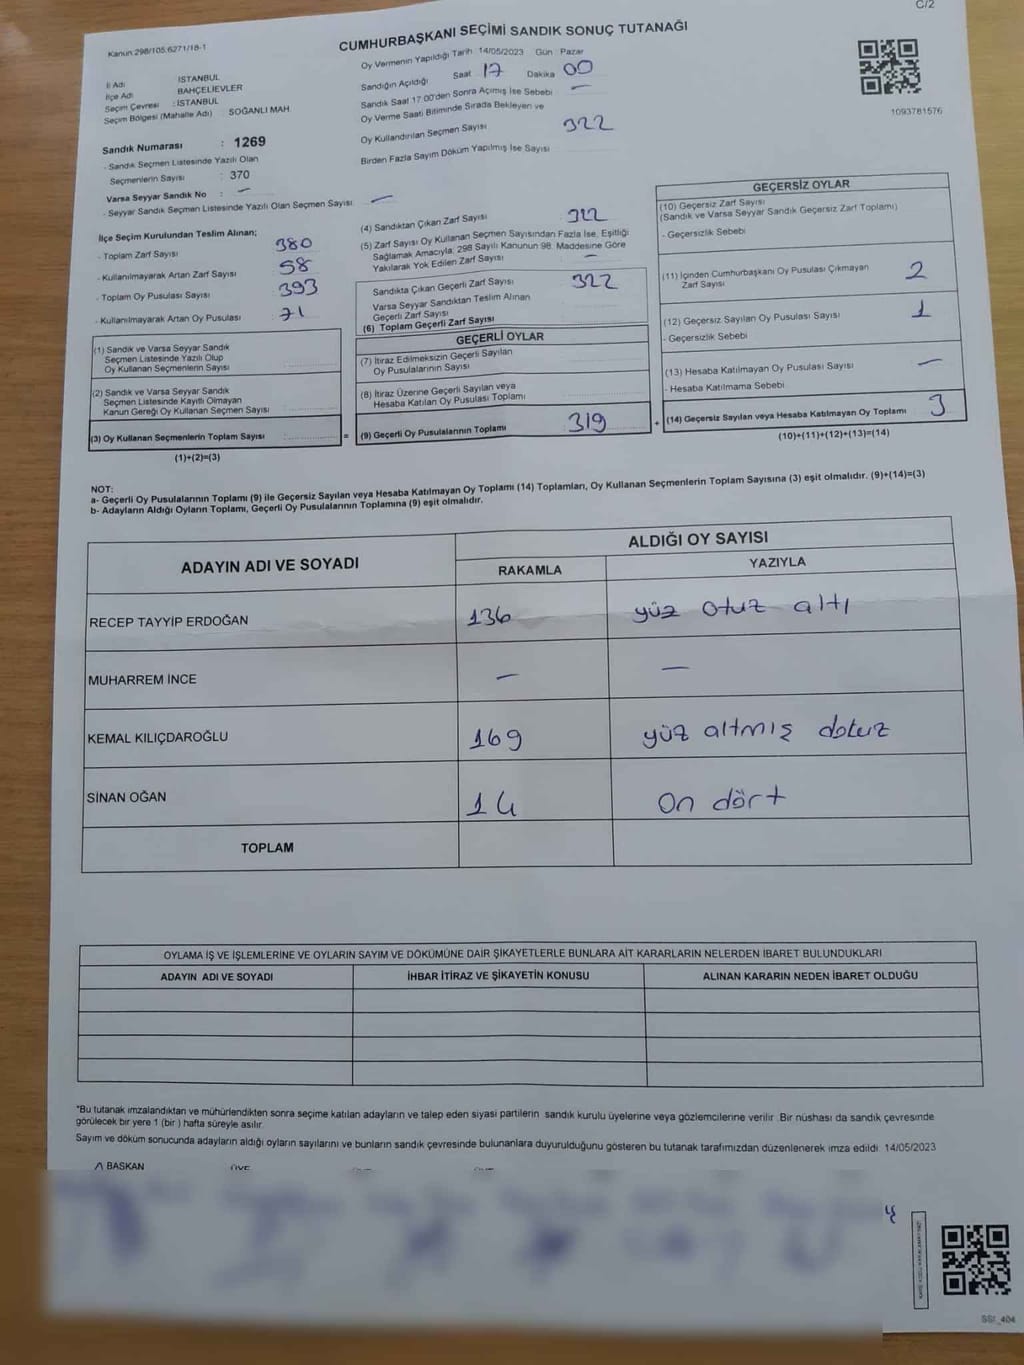 C/2
Kanun.298/105.6271/18-1
CUMHURBAŞKANI SEÇİMİ SANDIK SONUÇ TUTANAĞI
İl Adı : İSTANBUL
İlçe Adı : BAHÇELİEVLER
Seçim Çevresi : İSTANBUL
Seçim Bölgesi (Mahalle Adı) : SOĞANLI MAH.
Sandık Numarası : 1269
- Sandık Seçmen Listesinde Yazılı Olan
Seçmenlerin Sayısı : 370
Varsa Seyyar Sandık No : —
- Seyyar Sandık Seçmen Listesinde Yazılı Olan Seçmen Sayısı —
Oy Vermenin Yapıldığı Tarih 14/05/2023 Gün Pazar
Sandığın Açıldığı Saat 17 Dakika 00
Sandık Saat 17:00'den Sonra Açımış İse Sebebi —
Oy Verme Saati Bitiminde Sırada Bekleyen ve
Oy Kullandırılan Seçmen Sayısı 322
Birden Fazla Sayım Döküm Yapılmış İse Sayısı
1093781576
İlçe Seçim Kurulundan Teslim Alınan;
- Toplam Zarf Sayısı 380
- Kullanılmayarak Artan Zarf Sayısı 58
- Toplam Oy Pusulası Sayısı 393
- Kullanılmayarak Artan Oy Pusulası 71
(1) Sandık ve Varsa Seyyar Sandık
Seçmen Listesinde Yazılı Olup
Oy Kullanan Seçmenlerin Sayısı
(2) Sandık ve Varsa Seyyar Sandık
Seçmen Listesinde Kayıtlı Olmayan
Kanun Gereği Oy Kullanan Seçmen Sayısı
(3) Oy Kullanan Seçmenlerin Toplam Sayısı =
(1)+(2)=(3)
(4) Sandıktan Çıkan Zarf Sayısı 322
(5) Zarf Sayısı Oy Kullanan Seçmen Sayısından Fazla İse, Eşitliği
Sağlamak Amacıyla; 298 Sayılı Kanunun 98. Maddesine Göre
Yakılarak Yok Edilen Zarf Sayısı —
Sandıkta Çıkan Geçerli Zarf Sayısı 322
Varsa Seyyar Sandıktan Teslim Alınan
Geçerli Zarf Sayısı
(6) Toplam Geçerli Zarf Sayısı
GEÇERLİ OYLAR
(7) İtiraz Edilmeksizin Geçerli Sayılan
Oy Pusulalarının Sayısı
(8) İtiraz Üzerine Geçerli Sayılan veya
Hesaba Katılan Oy Pusulası Toplamı
(9) Geçerli Oy Pusulalarının Toplamı 319 +
GEÇERSİZ OYLAR
(10) Geçersiz Zarf Sayısı
(Sandık ve Varsa Seyyar Sandık Geçersiz Zarf Toplamı)
- Geçersizlik Sebebi
(11) İçinden Cumhurbaşkanı Oy Pusulası Çıkmayan
Zarf Sayısı 2
(12) Geçersiz Sayılan Oy Pusulası Sayısı 1
- Geçersizlik Sebebi
(13) Hesaba Katılmayan Oy Pusulası Sayısı —
- Hesaba Katılmama Sebebi
(14) Geçersiz Sayılan veya Hesaba Katılmayan Oy Toplamı 3
(10)+(11)+(12)+(13)=(14)
NOT:
a- Geçerli Oy Pusulalarının Toplamı (9) ile Geçersiz Sayılan veya Hesaba Katılmayan Oy Toplamı (14) Toplamları, Oy Kullanan Seçmenlerin Toplam Sayısına (3) eşit olmalıdır. (9)+(14)=(3)
b- Adayların Aldığı Oyların Toplamı, Geçerli Oy Pusulalarının Toplamına (9) eşit olmalıdır.
ADAYIN ADI VE SOYADI
ALDIĞI OY SAYISI
RAKAMLA YAZIYLA
RECEP TAYYİP ERDOĞAN 136 yüz otuz altı
MUHARREM İNCE — —
KEMAL KILIÇDAROĞLU 169 yüz altmış dokuz
SİNAN OĞAN 14 On dört
TOPLAM
OYLAMA İŞ VE İŞLEMLERİNE VE OYLARIN SAYIM VE DÖKÜMÜNE DAİR ŞİKAYETLERLE BUNLARA AİT KARARLARIN NELERDEN İBARET BULUNDUKLARI
ADAYIN ADI VE SOYADI İHBAR İTİRAZ VE ŞİKAYETİN KONUSU ALINAN KARARIN NEDEN İBARET OLDUĞU
*Bu tutanak imzalandıktan ve mühürlendikten sonra seçime katılan adayların ve talep eden siyasi partilerin sandık kurulu üyelerine veya gözlemcilerine verilir. Bir nüshası da sandık çevresinde
görülecek bir yere 1 (bir ) hafta süreyle asılır.
Sayım ve döküm sonucunda adayların aldığı oyların sayılarını ve bunların sandık çevresinde bulunanlara duyurulduğunu gösteren bu tutanak tarafımızdan düzenlenerek imza edildi. 14/05/2023
BAŞKAN ÜYE
SSI_404